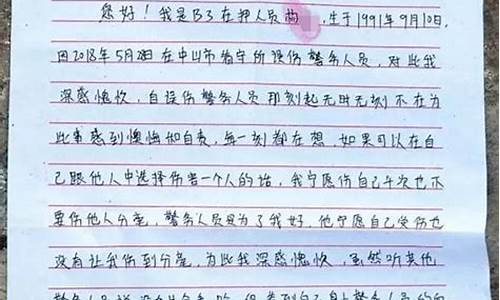 您好！我是B3在押人员尚 ，生于1991年9月10日.
因2018年5月2日在中山市看守所误伤警务人员，对此我
深感愧疚，自误伤警务人员那刻起无时无刻不在为
此事感到懊悔如自责，每一刻都在想，如果可以在自
己跟他人中选择伤害一个人的话，我宁愿伤自己千次也不
要伤他人分毫，警务人员是为了我好，他宁愿自己受伤也
没有让我伤到分毫，为此我深感愧疚，虽然听其他
警务人员说没有什么事